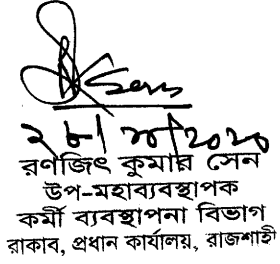 ২৮/০৮/২০২০
রণজিৎ কুমার সেন
উপ-মহাব্যবস্থাপক
কর্মী ব্যবস্থাপনা বিভাগ
রাকাব, প্রধান কার্যালয়, রাজশাহী